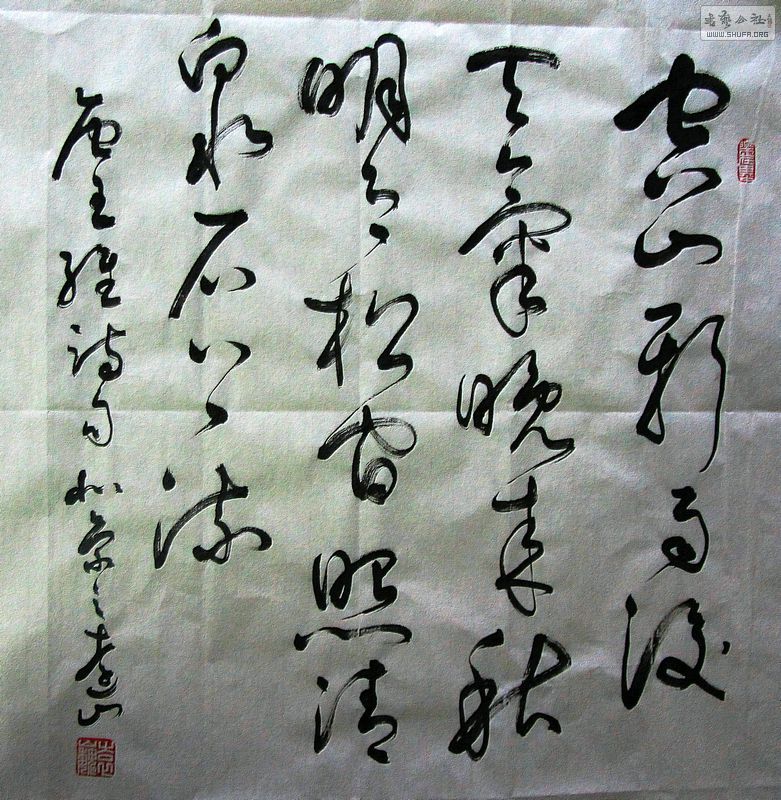 空山新雨後
天氣晚來秋
明月松間照清
泉石上流
唐王維詩句北京
書藝公社
WWW.SHUFA.ORG